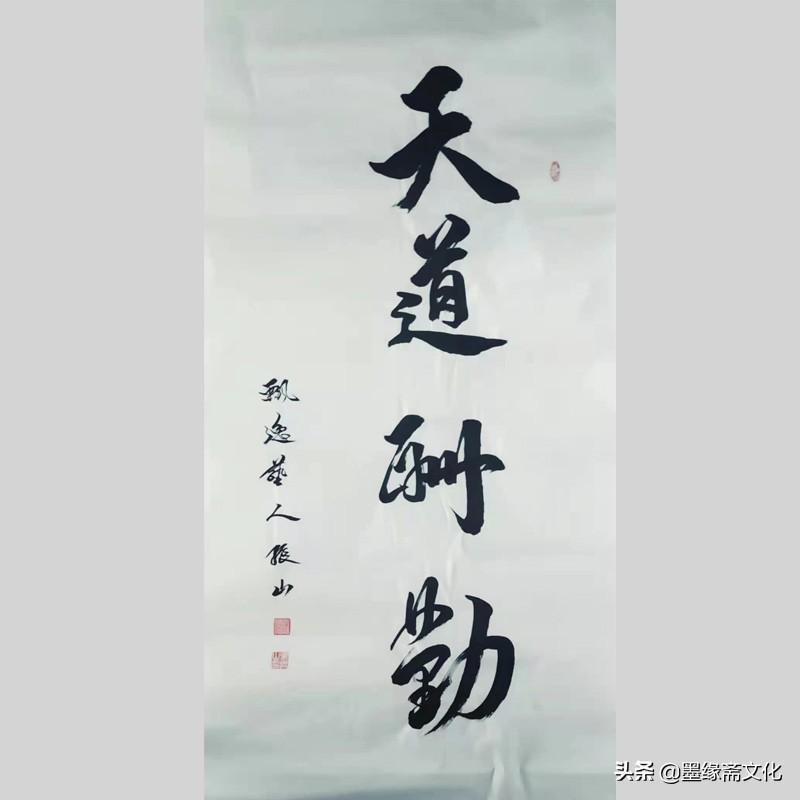 天道酬勤
飘逸藝人張山
头条 @墨缘斋文化